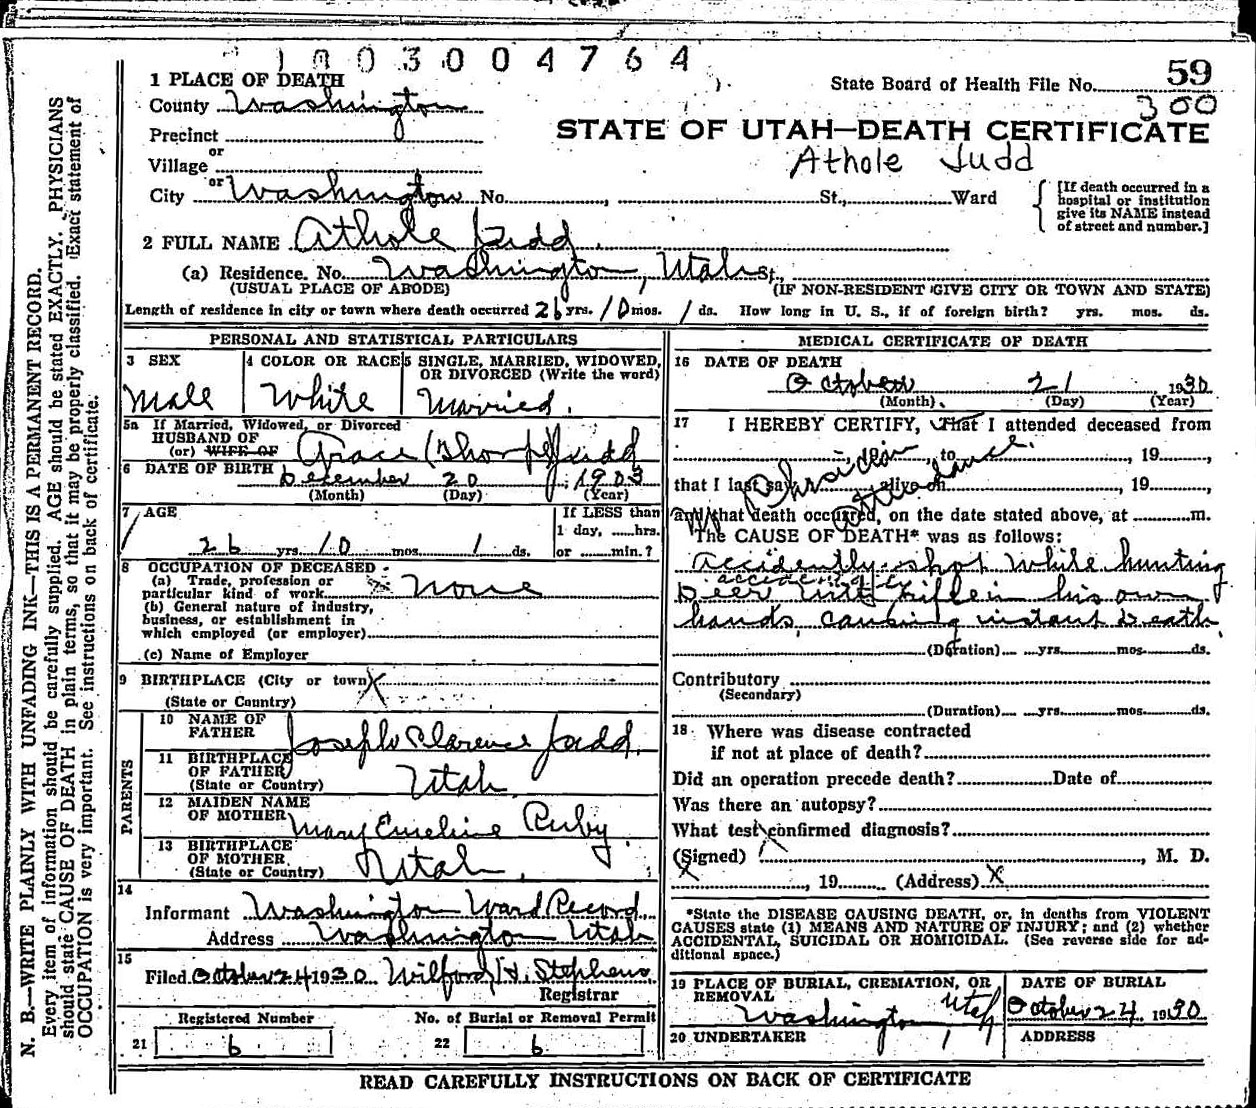 1003004764
1 PLACE OF DEATH
State Board of Health File No. 59
County Washington
300
Precinct
STATE OF UTAH—DEATH CERTIFICATE
or
Village
Athole Judd
or
City Washington No. , St., Ward
[If death occurred in a
hospital or institution
give its NAME instead
of street and number.]
2 FULL NAME Athole Judd
(a) Residence. No. Washington, Utah St,
(USUAL PLACE OF ABODE) (IF NON-RESIDENT GIVE CITY OR TOWN AND STATE)
Length of residence in city or town where death occurred 26 yrs. 10 mos. 1 ds. How long in U. S., if of foreign birth? yrs. mos. ds.
PERSONAL AND STATISTICAL PARTICULARS
3 SEX
Male
4 COLOR OR RACE
White
5 SINGLE, MARRIED, WIDOWED,
OR DIVORCED (Write the word)
Married.
5a If Married, Widowed, or Divorced
HUSBAND OF
(or) WIFE OF Grace (Thorp) Judd
6 DATE OF BIRTH December 20 1903
(Month) (Day) (Year)
7 AGE
26 yrs. 10 mos. 1 ds.
If LESS than
1 day, hrs.
or min.?
8 OCCUPATION OF DECEASED
(a) Trade, profession or
particular kind of work None
(b) General nature of industry,
business, or establishment in
which employed (or employer)
(c) Name of Employer
9 BIRTHPLACE (City or town) X
(State or Country)
PARENTS
10 NAME OF
FATHER Joseph Clarence Judd.
11 BIRTHPLACE
OF FATHER Utah
(State or Country)
12 MAIDEN NAME
OF MOTHER Mary Emeline Ruby
13 BIRTHPLACE
OF MOTHER Utah.
(State or Country)
14
Informant Washington Ward Record
Address Washington Utah
15
Filed October 24 1930 Wilford H. Stephens
Registrar
Registered Number No. of Burial or Removal Permit
21 6 22 6
MEDICAL CERTIFICATE OF DEATH
16 DATE OF DEATH
October 21, 1930
(Month) (Day) (Year)
17 I HEREBY CERTIFY, That I attended deceased from
, to , 19 ,
that I last saw alive on , 19 ,
and that death occurred, on the date stated above, at m.
No Physician
attendance.
The CAUSE OF DEATH* was as follows:
Accidently shot while hunting
accidently
Deer with rifle in his own
hands, causing instant Death
(Duration) yrs. mos. ds.
Contributory
(Secondary)
(Duration) yrs. mos. ds.
18 Where was disease contracted
if not at place of death?
Did an operation precede death? Date of
Was there an autopsy?
What test confirmed diagnosis?
(Signed) X , M. D.
X , 19 (Address) X
*State the DISEASE CAUSING DEATH, or, in deaths from VIOLENT
CAUSES state (1) MEANS AND NATURE OF INJURY; and (2) whether
ACCIDENTAL, SUICIDAL OR HOMICIDAL. (See reverse side for ad-
ditional space.)
19 PLACE OF BURIAL, CREMATION, OR
REMOVAL
Washington Utah
DATE OF BURIAL
October 24 1930
20 UNDERTAKER
ADDRESS
READ CAREFULLY INSTRUCTIONS ON BACK OF CERTIFICATE
N. B.—WRITE PLAINLY WITH UNFADING INK—THIS IS A PERMANENT RECORD.
Every item of information should be carefully supplied. AGE should be stated EXACTLY. PHYSICIANS
should state CAUSE OF DEATH in plain terms, so that it may be properly classified. Exact statement of
OCCUPATION is very important. See instructions on back of certificate.